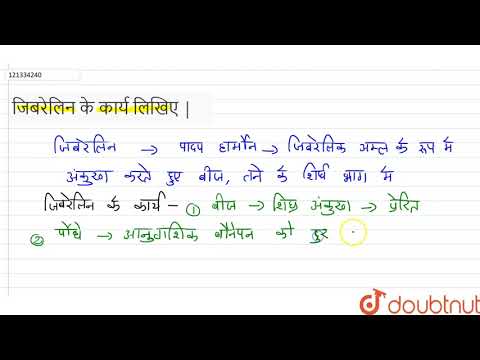 121334240
जिबरेलिन के कार्य लिखिए |
जिबरेलिन → पादप हार्मोन → जिबरेलिक अम्ल के रूप में
अंकुरण करते हुए बीज, तने के शिर्ष भाग में
जिबरेलिन के कार्य - ① बीज → शिघ्र अंकुरण → प्रेरित
② पौधे → आनुवांशिक बौनेपन को दुर
doubtnut